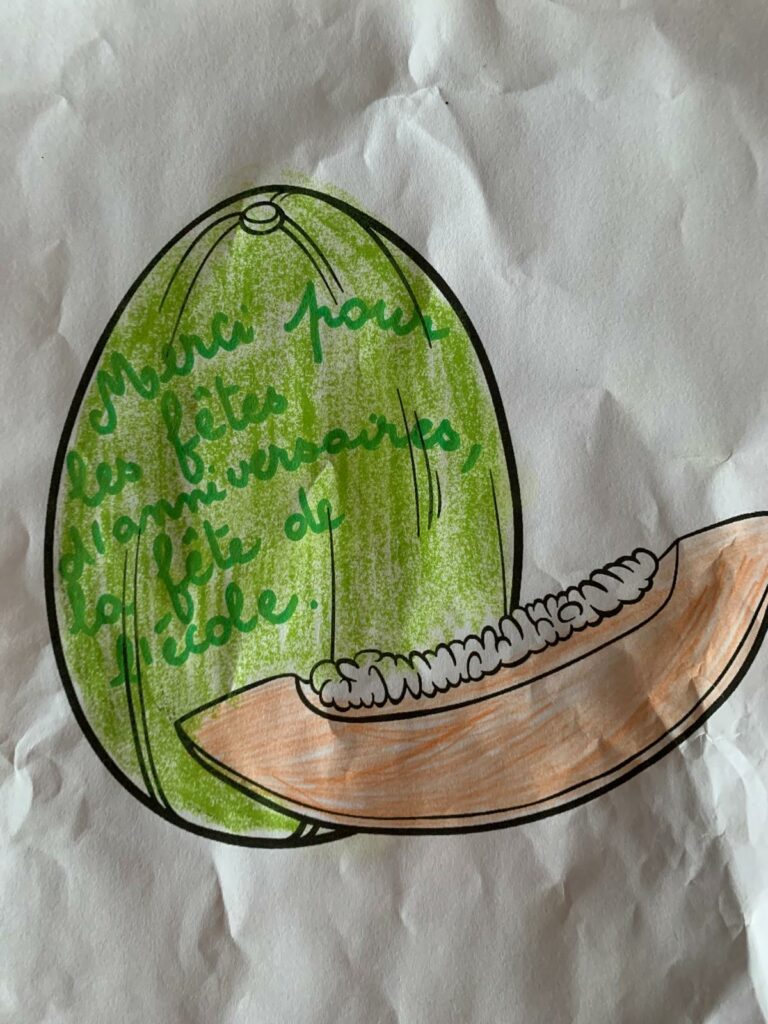 Merci pour
les fêtes
d'anniversaires,
la fête de
l'école.